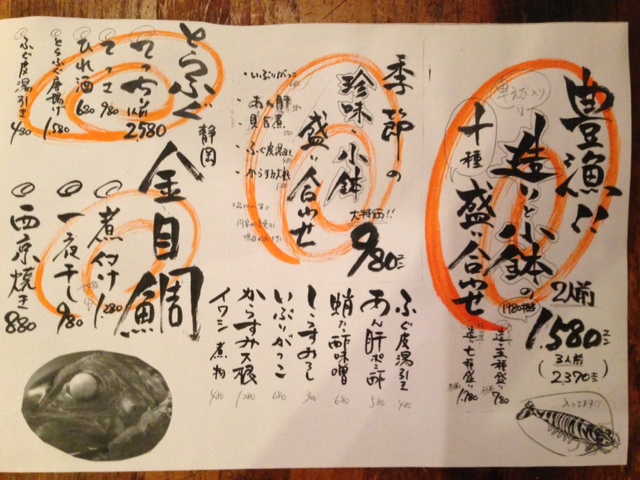 豊漁!!
造りと小鉢の
十種 盛り合わせ
2人前
1.580
3人前
(2370)
入ってます!!
季節の
珍味・小鉢
盛り合わせ
大特価!!
980
・いぶりがっこ
・あん肝
・ふぐ皮湯引き
・からすみ大根
ふぐ皮湯引き 480
あん肝ポン酢 580
蛸わた酢味噌 680
しらすおろし 300
いぶりがっこ 680
からすみ大根 1.280
イワシ煮物 480
とらふぐ
てっちり 1人前 2.580
てっさ 980
ひれ酒 680
とらふぐ唐揚げ 1.580
ふぐ皮湯引き 480
静岡
金目鯛
煮付け 1.280
一夜干し 980
西京焼き 880